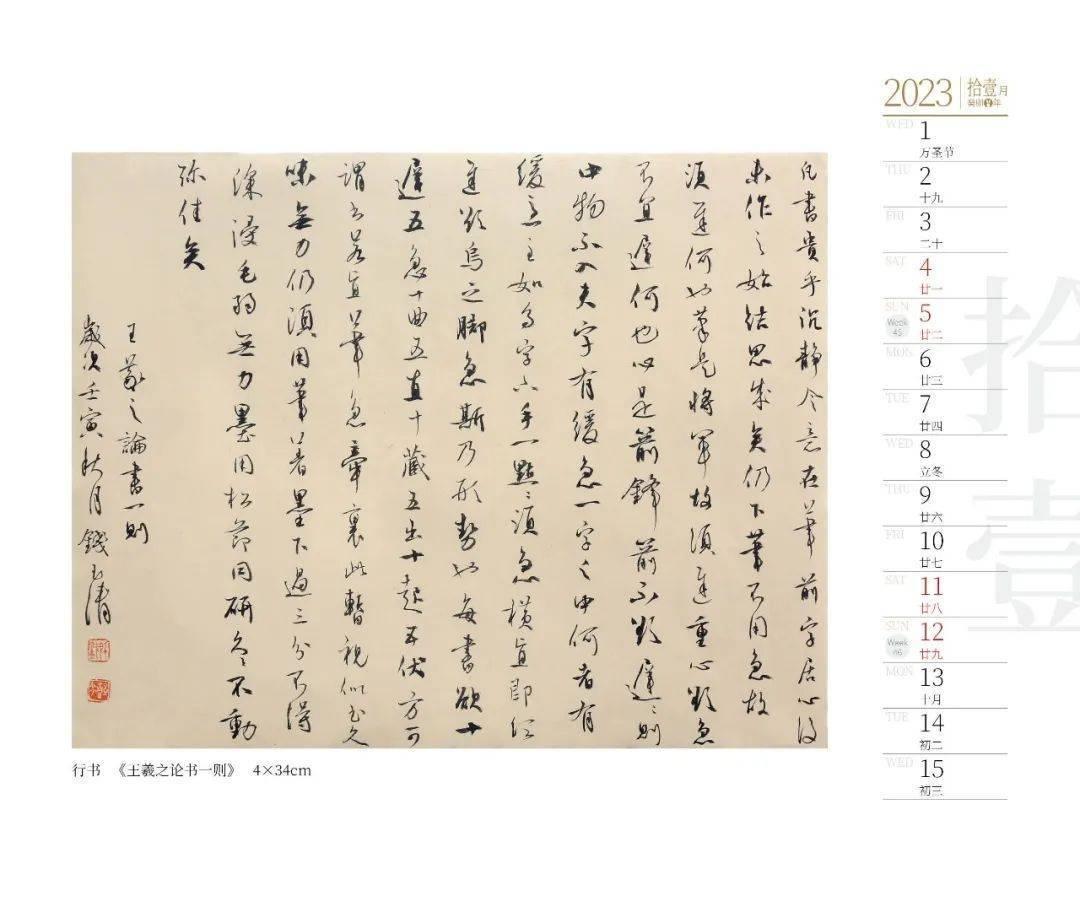 凡書貴乎沉靜令意在筆前字居心後
未作之始結思成矣仍下筆不用急故
須遲何也筆是將軍故須遲重心欲急
不宜遲何也心是箭鋒箭不欲遲〻則
中物不入夫字有緩急一字之中何者有
緩急至如烏字下手一點〻須急橫直即須
遲欲烏之腳急斯乃形勢也每書欲十
遲五急十曲五直十藏五出十起五伏方可
謂書若直筆急牽裹此暫視似書久
味無力仍須用筆著墨下過三分不得
深浸毛弱無力墨用松節同研久久不動
弥佳矣
王羲之論書一則
歲次壬寅秋月錢玉清
行书 《王羲之论书一则》 4×34cm
2023 拾壹月
癸卯年
WED 1
万圣节
THU 2
十九
FRI 3
二十
SAT 4
廿一
SUN 5
Week 45 廿二
MON 6
廿三
TUE 7
廿四
WED 8
立冬
THU 9
廿六
FRI 10
廿七
SAT 11
廿八
SUN 12
Week 46 廿九
MON 13
十月
TUE 14
初二
WED 15
初三
拾壹